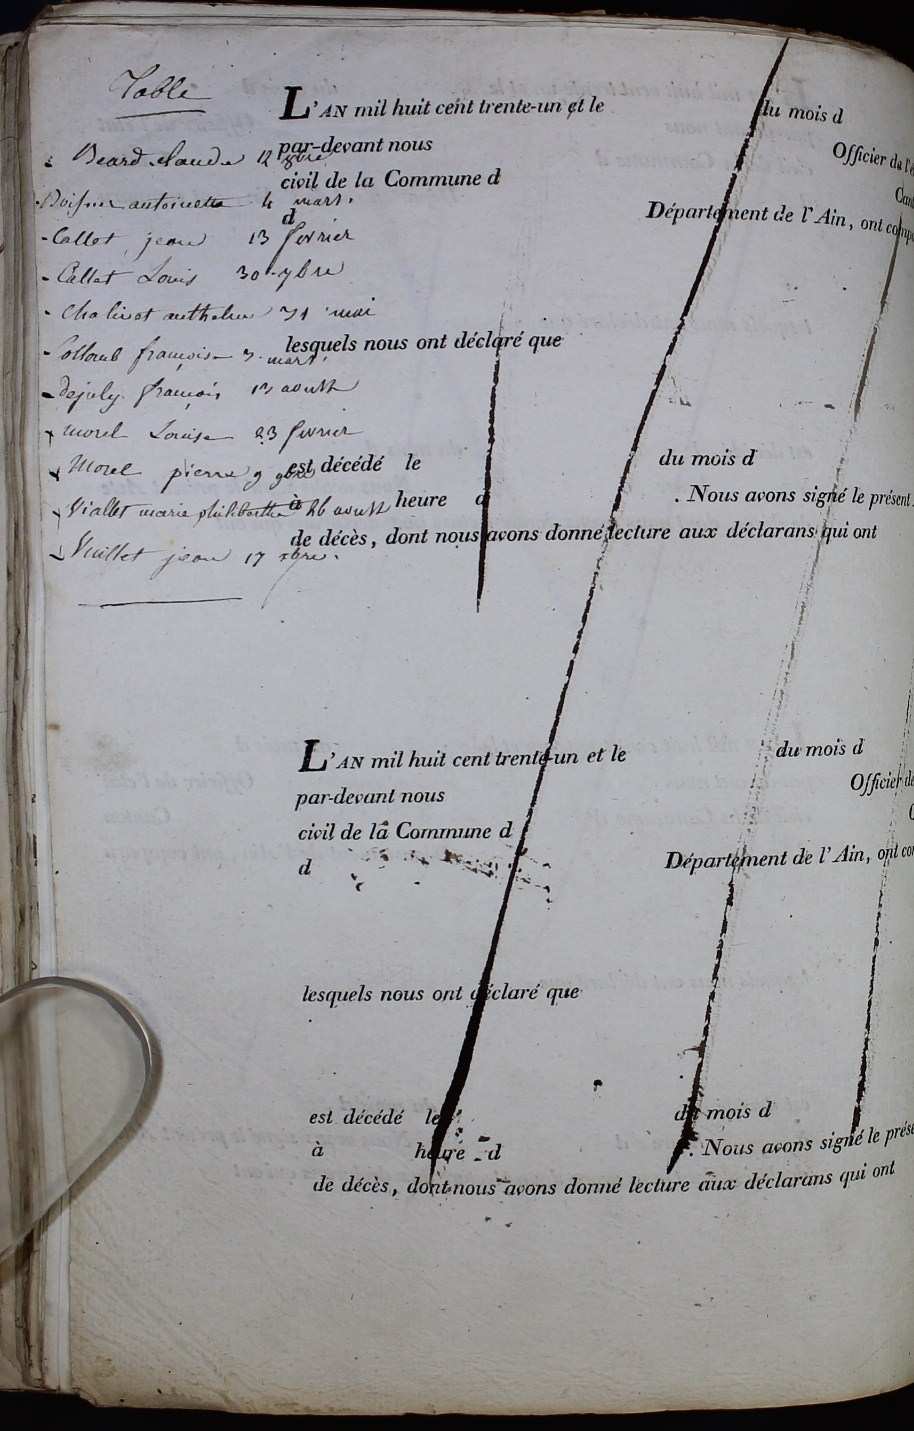 Table
Beard claude 12 xbre
antoinette 4 mars.
Callet jean 13 février
Callet Louis 30 7bre
Chalivot 31 mai
Collomb françoise 3 mars.
Dejuly françois 13 aoust
morel Louise 23 février
Morel pierre 9 9bre
Viallet marie philiberthe 26 aoust
Vuillet jean 17 xbre.
L'AN mil huit cent trente-un et le du mois d
par-devant nous Officier de l'é
civil de la Commune d Cant
d Département de l'Ain, ont comp
lesquels nous ont déclaré que
est décédé le du mois d
à heure d . Nous avons signé le présent
de décès, dont nous avons donné lecture aux déclarans qui ont
L'AN mil huit cent trente-un et le du mois d
par-devant nous Officier de
civil de la Commune d
d Département de l'Ain, ont con
lesquels nous ont déclaré que
est décédé le du mois d
à heure d . Nous avons signé le prése
de décès, dont nous avons donné lecture aux déclarans qui ont